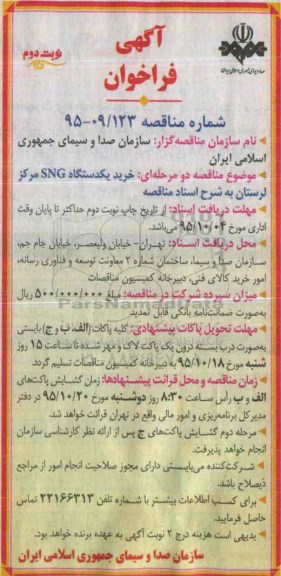 نوبت دوم
آگهی
فراخوان
شماره مناقصه ۰۹/۱۲۳-۹۵
نام سازمان مناقصه‌گزار: سازمان صدا و سیمای جمهوری
اسلامی ایران
موضوع مناقصه دو مرحله‌ای: خرید یکدستگاه SNG مرکز
لرستان به شرح اسناد مناقصه
مهلت دریافت اسناد: از تاریخ چاپ نوبت دوم حداکثر تا پایان وقت
اداری مورخ ۹۵/۱۰/۰۴ می‌باشد.
محل دریافت اسناد: تهران- خیابان ولیعصر، خیابان جام جم،
سازمان صدا و سیما، ساختمان شماره ۲ معاونت توسعه و فناوری رسانه،
امور خرید کالای فنی، دبیرخانه کمیسیون مناقصات
میزان سپرده شرکت در مناقصه: مبلغ ۵۰۰/۰۰۰/۰۰۰ ریال
به‌صورت ضمانت‌نامه بانکی قابل تمدید
مهلت تحویل پاکات پیشنهادی: کلیه پاکات (الف، ب و ج) بایستی
به‌صورت درب بسته درون یک پاکت لاک و مهر شده تا ساعت ۱۵ روز
شنبه مورخ ۹۵/۱۰/۱۸ به دبیرخانه کمیسیون مناقصات تسلیم گردد.
زمان مناقصه و محل قرائت پیشنهادها: زمان گشایش پاکت‌های
الف و ب رأس ساعت ۸:۳۰ روز دوشنبه مورخ ۹۵/۱۰/۲۰ در دفتر
مدیرکل برنامه‌ریزی و امور مالی واقع در تهران قرائت خواهد شد.
مرحله دوم گشایش پاکت‌های ج پس از ارائه نظر کارشناسی سازمان
انجام خواهد پذیرفت.
شرکت‌کننده می‌بایستی دارای مجوز صلاحیت انجام امور از مراجع
ذیصلاح باشد.
برای کسب اطلاعات بیشتر با شماره تلفن ۲۲۱۶۶۳۱۳ تماس
حاصل فرمایید.
بدیهی است هزینه درج ۲ نوبت آگهی به عهده برنده خواهد بود.
سازمان صدا و سیمای جمهوری اسلامی ایران